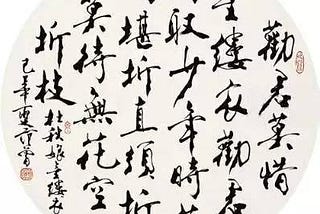 勸君莫惜
金縷衣勸君
取少年時花
堪折直須折
莫待無花空
折枝
杜秋娘金縷衣